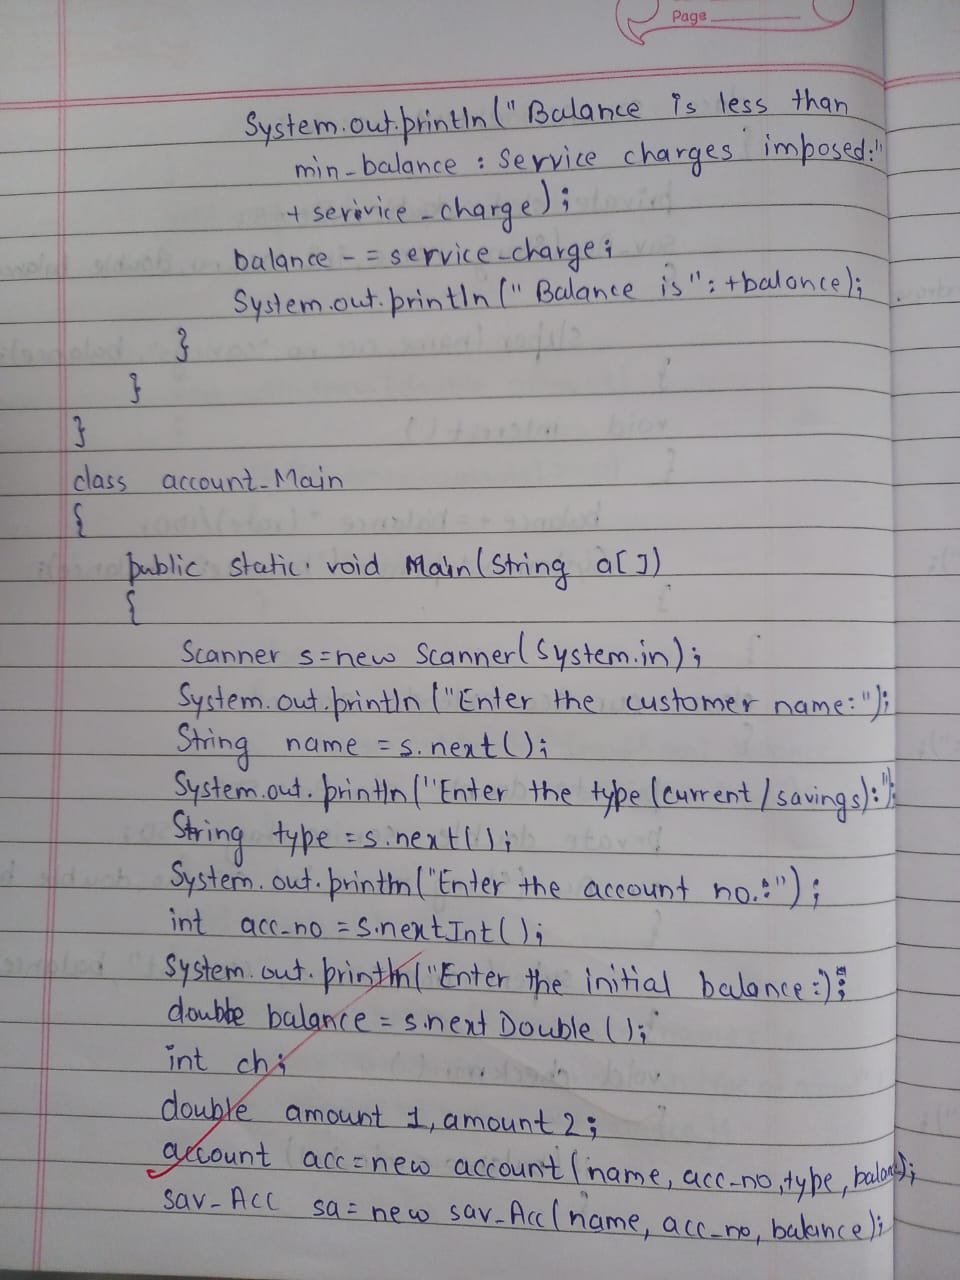 Page
System.out.println("Balance is less than
min_balance : service charges imposed:"
+ serivice_charge);
balance -= service_charge;
System.out.println("Balance is": +balance);
}
}
}
class account_Main
{
public static void Main(String a[])
{
Scanner s=new Scanner(System.in);
System.out.println("Enter the customer name:");
String name = s.next();
System.out.println("Enter the type (current/savings):");
String type = s.next();
System.out.println("Enter the account no.:");
int acc_no = s.nextInt();
System.out.println("Enter the initial balance:");
double balance = s.nextDouble();
int ch;
double amount 1, amount 2;
account acc=new account(name, acc_no, type, balance);
sav_Acc sa = new sav_Acc(name, acc_no, balance);